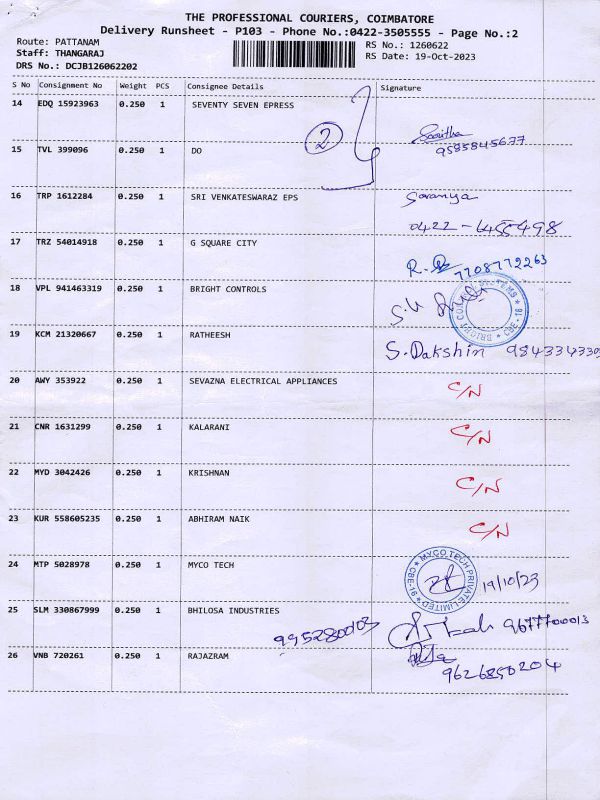 THE PROFESSIONAL COURIERS, COIMBATORE
Delivery Runsheet - P103 - Phone No.:0422-3505555 - Page No.:2
Route: PATTANAM
RS No.: 1260622
Staff: THANGARAJ
RS Date: 19-Oct-2023
DRS No.: DCJB126062202
S No Consignment No Weight PCS Consignee Details Signature
14 EDQ 15923963 0.250 1 SEVENTY SEVEN EPRESS
2
9585845677
15 TVL 399096 0.250 1 DO
16 TRP 1612284 0.250 1 SRI VENKATESWARAZ EPS Saranya
0422-6455498
17 TRZ 54014918 0.250 1 G SQUARE CITY
7708772263
18 VPL 941463319 0.250 1 BRIGHT CONTROLS
19 KCM 21320667 0.250 1 RATHEESH
S.Dakshin 984334330
20 AWY 353922 0.250 1 SEVAZNA ELECTRICAL APPLIANCES C/N
21 CNR 1631299 0.250 1 KALARANI C/N
22 MYD 3042426 0.250 1 KRISHNAN C/N
23 KUR 558605235 0.250 1 ABHIRAM NAIK C/N
24 MTP 5028978 0.250 1 MYCO TECH
MYCO TECH PRIVATE LIMITED CBE-16
19/10/23
25 SLM 330867999 0.250 1 BHILOSA INDUSTRIES
9677700013
26 VNB 720261 0.250 1 RAJAZRAM
9626850204